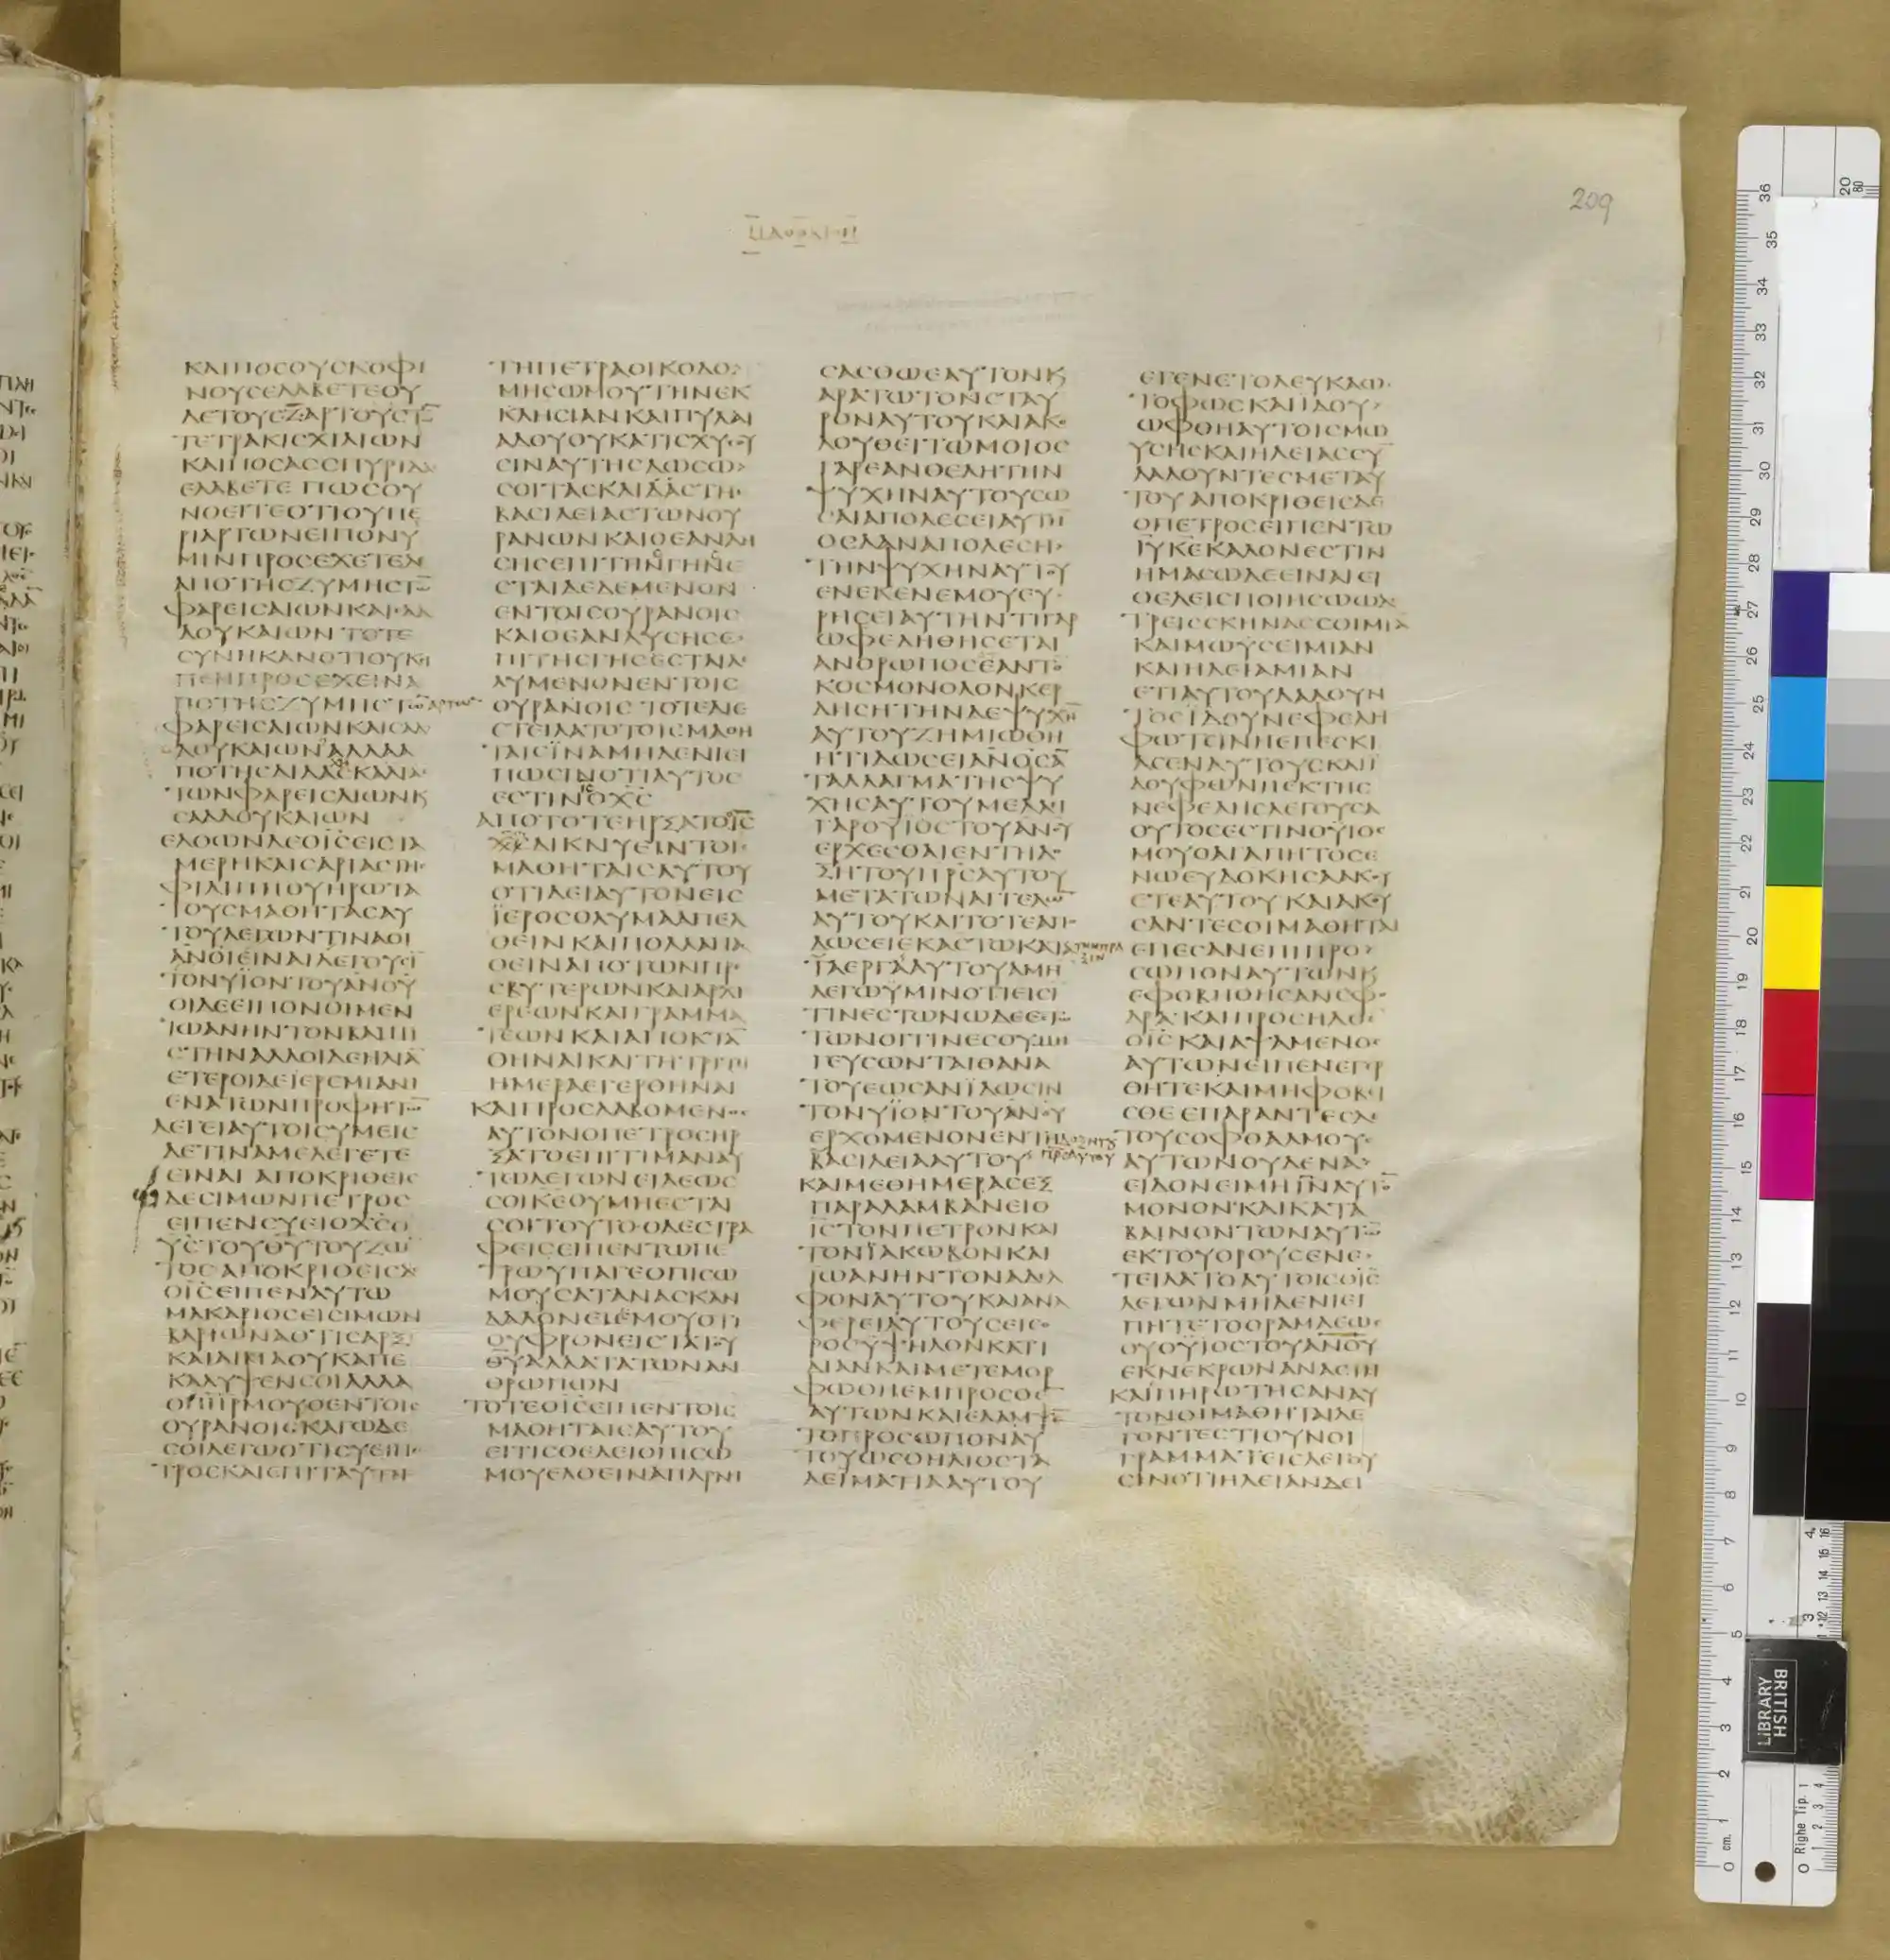 209
ΚΑΙΠΟϹΟΥϹΚΟΦΙ
ΝΟΥϹΕΛΑΒΕΤΕΟΥ
ΔΕΤΟΥϹΖ̅ΑΡΤΟΥϹΤΩ̅
ΤΕΤΡΑΚΙϹΧΙΛΙΩΝ
ΚΑΙΠΟϹΑϹϹΠΥΡΙΔΑϹ
ΕΛΑΒΕΤΕΠΩϹΟΥ
ΝΟΕΙΤΕΟΤΙΟΥΠΕ
ΡΙΑΡΤΩΝΕΙΠΟΝΥ
ΜΙΝΠΡΟϹΕΧΕΤΕΔΕ
ΑΠΟΤΗϹΖΥΜΗϹΤΩ̅
ΦΑΡΕΙϹΑΙΩΝΚΑΙϹΑΔ
ΔΟΥΚΑΙΩΝΤΟΤΕ
ϹΥΝΗΚΑΝΟΤΙΟΥΚΕΙ
ΠΕΝΠΡΟϹΕΧΕΙΝΑ
ΠΟΤΗϹΖΥΜΗϹΤΩ̅ΑΡΤΩΝ
ΦΑΡΕΙϹΑΙΩΝΚΑΙϹΑΔ
ΔΟΥΚΑΙΩΝΑΛΛΑΑ
ΠΟΤΗϹΔΙΔΑϹΚΑΛΙΑϹ
ΤΩΝΦΑΡΕΙϹΑΙΩΝΚ
ϹΑΔΔΟΥΚΑΙΩΝ
ΕΛΘΩΝΔΕΟΙ̅Ϲ̅ΕΙϹΤΑ
ΜΕΡΗΚΑΙϹΑΡΙΑϹΤΗϹ
ΦΙΛΙΠΠΟΥΗΡΩΤΑ
ΤΟΥϹΜΑΘΗΤΑϹΑΥ
ΤΟΥΛΕΓΩΝΤΙΝΑΟΙ
Α̅Ν̅Ο̅Ι̅ΕΙΝΑΙΛΕΓΟΥϹΙ̅
ΤΟΝΥΪΟΝΤΟΥΑ̅Ν̅Ο̅Υ̅
ΟΙΔΕΕΙΠΟΝΟΙΜΕΝ
ΪΩΑΝΗΝΤΟΝΒΑΠΤΙ
ϹΤΗΝΑΛΛΟΙΔΕΗΛΙΑ̅
ΕΤΕΡΟΙΔΕΪΕΡΕΜΙΑΝΗ
ΕΝΑΤΩΝΠΡΟΦΗΤΩ̅
ΛΕΓΕΙΑΥΤΟΙϹΥΜΕΙϹ
ΔΕΤΙΝΑΜΕΛΕΓΕΤΕ
ΕΙΝΑΙΑΠΟΚΡΙΘΕΙϹ
ΔΕϹΙΜΩΝΠΕΤΡΟϹ
ΕΙΠΕΝϹΥΕΙΟΧ̅Ϲ̅Ο
Υ̅Ϲ̅ΤΟΥΘ̅Υ̅ΤΟΥΖΩ̅
ΤΟϹΑΠΟΚΡΙΘΕΙϹΔΕ
ΟΙ̅Ϲ̅ΕΙΠΕΝΑΥΤΩ
ΜΑΚΑΡΙΟϹΕΙϹΙΜΩΝ
ΒΑΡΙΩΝΑΟΤΙϹΑΡΞ
ΚΑΙΑΙΜΑΟΥΚΑΠΕ
ΚΑΛΥΨΕΝϹΟΙΑΛΛΑ
ΟΠ̅Η̅Ρ̅ΜΟΥΟΕΝΤΟΙϹ
ΟΥΡΑΝΟΙϹΚΑΓΩΔΕ
ϹΟΙΛΕΓΩΟΤΙϹΥΕΙΠΕ
ΤΡΟϹΚΑΙΕΠΙΤΑΥΤΗ
ΤΗΠΕΤΡΑΟΙΚΟΔΟ>
ΜΗϹΩΜΟΥΤΗΝΕΚ
ΚΛΗϹΙΑΝΚΑΙΠΥΛΑΙ
ΑΔΟΥΟΥΚΑΤΙϹΧΥϹΟΥ
ϹΙΝΑΥΤΗϹΔΩϹΩ>
ϹΟΙΤΑϹΚΛΙΔΑϹΤΗϹ
ΒΑϹΙΛΕΙΑϹΤΩΝΟΥ
ΡΑΝΩΝΚΑΙΟΕΑΝΔΗ
ϹΗϹΕΠΙΤΗΝΓΗΝΕ
ϹΤΑΙΔΕΔΕΜΕΝΟΝ
ΕΝΤΟΙϹΟΥΡΑΝΟΙϹ
ΚΑΙΟΕΑΝΛΥϹΗϹΕ>
ΠΙΤΗϹΓΗϹΕϹΤΑΙΛΕ
ΛΥΜΕΝΟΝΕΝΤΟΙϹ
ΟΥΡΑΝΟΙϹΤΟΤΕΔΙΕ
ϹΤΕΙΛΑΤΟΤΟΙϹΜΑΘΗ
ΤΑΙϹΪΝΑΜΗΔΕΝΙΕΙ
ΠΩϹΙΝΟΤΙΑΥΤΟϹ
ΕϹΤΙΝΟΧ̅Ϲ̅
ΑΠΟΤΟΤΕΗΡΞΑΤΟΙ̅Ϲ̅
Χ̅Ϲ̅ΔΙΚΝΥΕΙΝΤΟΙϹ
ΜΑΘΗΤΑΙϹΑΥΤΟΥ
ΟΤΙΔΕΙΑΥΤΟΝΕΙϹ
ΪΕΡΟϹΟΛΥΜΑΑΠΕΛ
ΘΕΙΝΚΑΙΠΟΛΛΑΠΑ
ΘΕΙΝΑΠΟΤΩΝΠΡΕ
ϹΒΥΤΕΡΩΝΚΑΙΑΡΧΙ
ΕΡΕΩΝΚΑΙΓΡΑΜΜΑ
ΤΕΩΝΚΑΙΑΠΟΚΤΑ̅
ΘΗΝΑΙΚΑΙΤΗΤΡΙΤΗ
ΗΜΕΡΑΕΓΕΡΘΗΝΑΙ
ΚΑΙΠΡΟϹΛΑΒΟΜΕΝΟϹ
ΑΥΤΟΝΟΠΕΤΡΟϹΗΡ
ΞΑΤΟΕΠΙΤΙΜΑΝΑΥ
ΤΩΛΕΓΩΝΕΙΛΕΩϹ
ϹΟΙΚΕΟΥΜΗΕϹΤΑΙ
ϹΟΙΤΟΥΤΟΟΔΕϹΤΡΑ
ΦΕΙϹΕΙΠΕΝΤΩΠΕ
ΤΡΩΥΠΑΓΕΟΠΙϹΩ
ΜΟΥϹΑΤΑΝΑϹΚΑΝ
ΔΑΛΟΝΕΙΕΜΟΥΟΤΙ
ΟΥΦΡΟΝΕΙϹΤΑΤΟΥ
Θ̅Υ̅ΑΛΛΑΤΑΤΩΝΑΝ
ΘΡΩΠΩΝ
ΤΟΤΕΟΙ̅Ϲ̅ΕΙΠΕΝΤΟΙϹ
ΜΑΘΗΤΑΙϹΑΥΤΟΥ
ΕΙΤΙϹΘΕΛΕΙΟΠΙϹΩ
ΜΟΥΕΛΘΕΙΝΑΠΑΡΝΗ
ϹΑϹΘΩΕΑΥΤΟΝΚ
ΑΡΑΤΩΤΟΝϹΤΑΥ
ΡΟΝΑΥΤΟΥΚΑΙΑΚΟ
ΛΟΥΘΕΙΤΩΜΟΙΟϹ
ΓΑΡΕΑΝΘΕΛΗΤΗΝ
ΨΥΧΗΝΑΥΤΟΥϹΩ
ϹΑΙΑΠΟΛΕϹΕΙΑΥΤΗ̅
ΟϹΔΑΝΑΠΟΛΕϹΗ>
ΤΗΝΨΥΧΗΝΑΥΤΟΥ
ΕΝΕΚΕΝΕΜΟΥΕΥ>
ΡΗϹΕΙΑΥΤΗΝΤΙΓΑΡ
ΩΦΕΛΗΘΗϹΕΤΑΙ
ΑΝΘΡΩΠΟϹΕΑΝΤΟ
ΚΟϹΜΟΝΟΛΟΝΚΕΡ
ΔΗϹΗΤΗΝΔΕΨΥΧΗ̅
ΑΥΤΟΥΖΗΜΙΩΘΗ
ΗΤΙΔΩϹΕΙΑ̅Ν̅Ο̅Ϲ̅Α̅
ΤΑΛΛΑΓΜΑΤΗϹΨΥ
ΧΗϹΑΥΤΟΥΜΕΛΛΙ
ΓΑΡΟΥΪΟϹΤΟΥΑ̅Ν̅Ο̅Υ̅
ΕΡΧΕϹΘΑΙΕΝΤΗΔΟ
ΞΗΤΟΥΠ̅Ρ̅Ϲ̅ΑΥΤΟΥ
ΜΕΤΑΤΩΝΑΓΓΕΛΩ̅
ΑΥΤΟΥΚΑΙΤΟΤΕΑΠΟ
ΔΩϹΕΙΕΚΑϹΤΩΚΑΤΑ
ΤΑΕΡΓΑΑΥΤΟΥΑΜΗ
ΛΕΓΩΫΜΙΝΟΤΙΕΙϹΙ
ΤΙΝΕϹΤΩΝΩΔΕΕϹΤΩ
ΤΩΝΟΙΤΙΝΕϹΟΥΜΗ
ΓΕΥϹΩΝΤΑΙΘΑΝΑ
ΤΟΥΕΩϹΑΝΪΔΩϹΙΝ
ΤΟΝΥΪΟΝΤΟΥΑ̅Ν̅Ο̅Υ̅
ΕΡΧΟΜΕΝΟΝΕΝΤΗ
ΒΑϹΙΛΕΙΑΑΥΤΟΥ
ΚΑΙΜΕΘΗΜΕΡΑϹΕΞ
ΠΑΡΑΛΑΜΒΑΝΕΙΟ
Ι̅Ϲ̅ΤΟΝΠΕΤΡΟΝΚΑΙ
ΤΟΝΪΑΚΩΒΟΝΚΑΙ
ΪΩΑΝΗΝΤΟΝΑΔΕΛ
ΦΟΝΑΥΤΟΥΚΑΙΑΝΑ
ΦΕΡΕΙΑΥΤΟΥϹΕΙϹΟ
ΡΟϹΫΨΗΛΟΝΚΑΤΙ
ΔΙΑΝΚΑΙΜΕΤΕΜΟΡ
ΦΩΘΗΕΜΠΡΟϹΘΕ̅
ΑΥΤΩΝΚΑΙΕΛΑΜΨΕ̅
ΤΟΠΡΟϹΩΠΟΝΑΥ
ΤΟΥΩϹΟΗΛΙΟϹΤΑ
ΔΕΙΜΑΤΙΑΑΥΤΟΥ
ΕΓΕΝΕΤΟΛΕΥΚΑΩϹ
ΤΟΦΩϹΚΑΙΪΔΟΥ>
ΩΦΘΗΑΥΤΟΙϹΜΩ
ΥϹΗϹΚΑΙΗΛΕΙΑϹϹΥ̅
ΛΑΛΟΥΝΤΕϹΜΕΤΑΥ
ΤΟΥΑΠΟΚΡΙΘΕΙϹΔΕ
ΟΠΕΤΡΟϹΕΙΠΕΝΤΩ
Ι̅Υ̅Κ̅Ε̅ΚΑΛΟΝΕϹΤΙΝ
ΗΜΑϹΩΔΕΕΙΝΑΙΕΙ
ΘΕΛΕΙϹΠΟΙΗϹΩΩΔΕ
ΤΡΕΙϹϹΚΗΝΑϹϹΟΙΜΙΑ̅
ΚΑΙΜΩΥϹΕΙΜΙΑΝ
ΚΑΙΗΛΕΙΑΜΙΑΝ
ΕΤΙΑΥΤΟΥΛΑΛΟΥΝ
ΤΟϹΪΔΟΥΝΕΦΕΛΗ
ΦΩΤΕΙΝΗΕΠΕϹΚΙ
ΑϹΕΝΑΥΤΟΥϹΚΑΙΪ
ΔΟΥΦΩΝΗΕΚΤΗϹ
ΝΕΦΕΛΗϹΛΕΓΟΥϹΑ
ΟΥΤΟϹΕϹΤΙΝΟΥΙΟϹ
ΜΟΥΟΑΓΑΠΗΤΟϹΕ
ΝΩΕΥΔΟΚΗϹΑΑΚΟΥ
ϹΤΕΑΥΤΟΥΚΑΙΑΚΟΥ
ϹΑΝΤΕϹΟΙΜΑΘΗΤΑΙ
ΕΠΕϹΑΝΕΠΙΠΡΟ>
ϹΩΠΟΝΑΥΤΩΝΚ
ΕΦΟΒΗΘΗϹΑΝϹΦΟ
ΔΡΑΚΑΙΠΡΟϹΗΛΘΕ
ΟΙ̅Ϲ̅ΚΑΙΑΨΑΜΕΝΟϹ
ΑΥΤΩΝΕΙΠΕΝΕΓΕΡ
ΘΗΤΕΚΑΙΜΗΦΟΒΙ
ϹΘΕΕΠΑΡΑΝΤΕϹΔΕ
ΤΟΥϹΟΦΘΑΛΜΟΥϹ
ΑΥΤΩΝΟΥΔΕΝΑ>
ΕΙΔΟΝΕΙΜΗΙ̅Ν̅ΑΥΤΟ̅
ΜΟΝΟΝΚΑΙΚΑΤΑ
ΒΑΙΝΟΝΤΩΝΑΥΤΩ̅
ΕΚΤΟΥΟΡΟΥϹΕΝΕ>
ΤΕΙΛΑΤΟΑΥΤΟΙϹΟΙ̅Ϲ̅
ΛΕΓΩΝΜΗΔΕΝΙΕΙ
ΠΗΤΕΤΟΟΡΑΜΑΕΩϹ
ΟΥΟΥΪΟϹΤΟΥΑ̅Ν̅Ο̅Υ̅
ΕΚΝΕΚΡΩΝΑΝΑϹΤΗ
ΚΑΙΕΠΗΡΩΤΗϹΑΝΑΥ
ΤΟΝΟΙΜΑΘΗΤΑΙΛΕ
ΓΟΝΤΕϹΤΙΟΥΝΟΙ
ΓΡΑΜΜΑΤΕΙϹΛΕΓΟΥ
ϹΙΝΟΤΙΗΛΕΙΑΝΔΕΙ